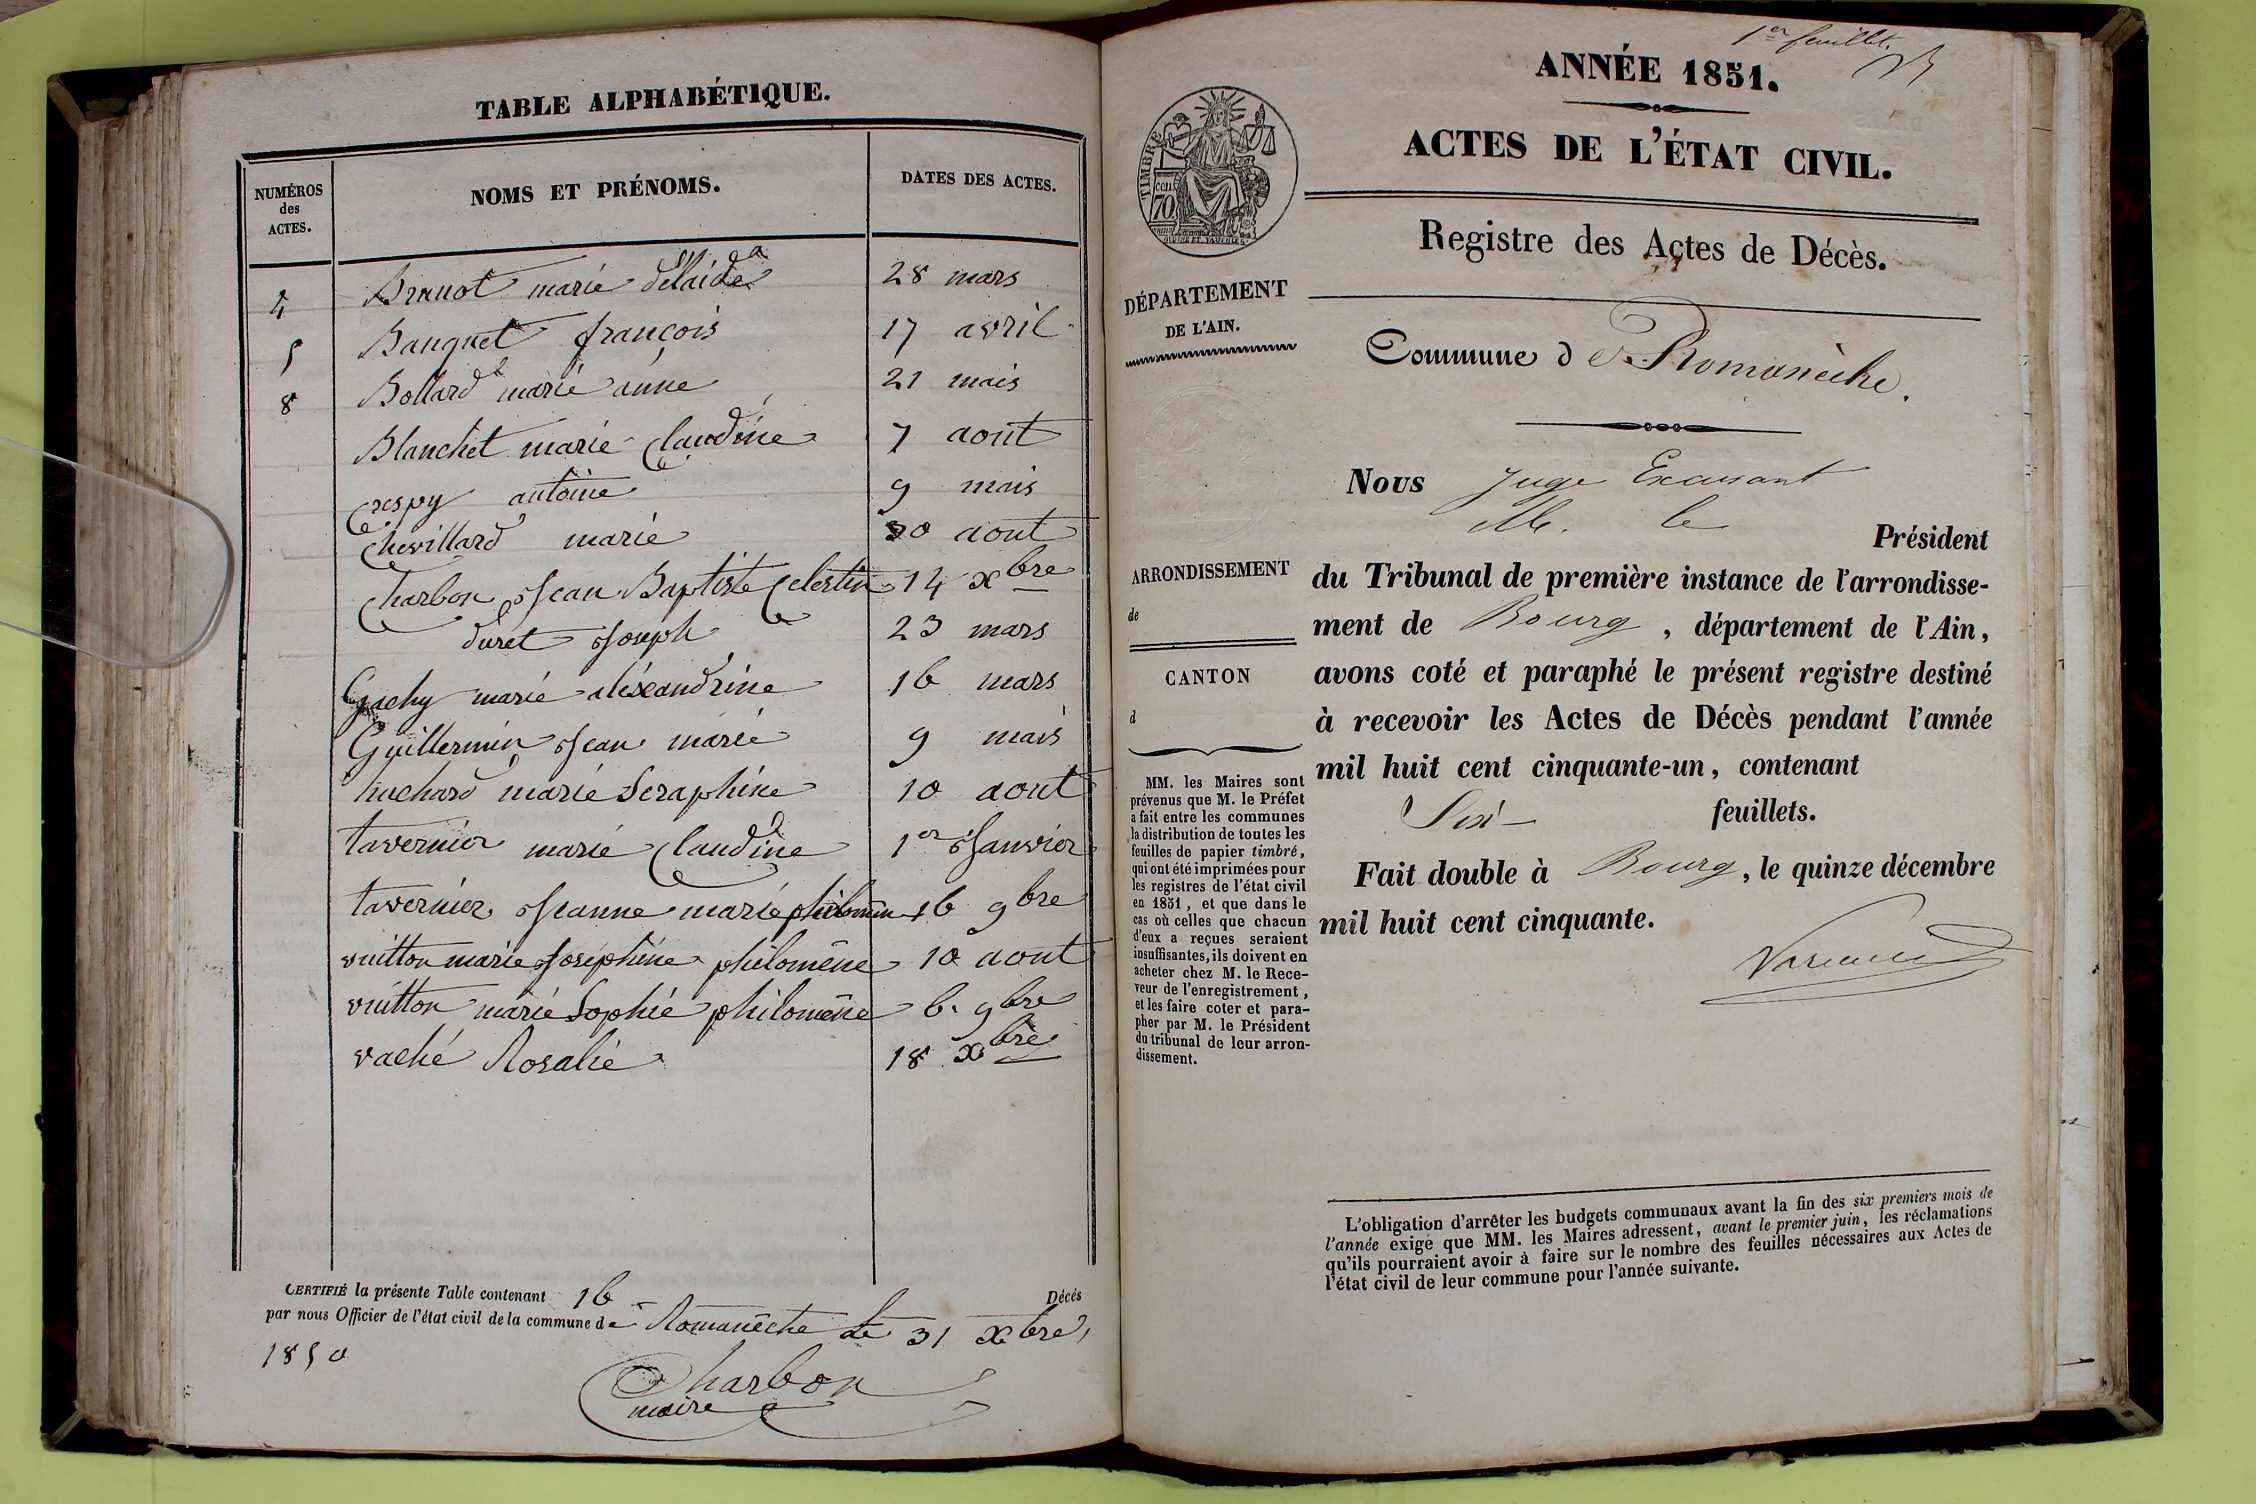 TABLE ALPHABÉTIQUE.
NUMÉROS des ACTES. NOMS ET PRÉNOMS. DATES DES ACTES.
4 marie délaide 28 mars
5 Banquet françois 17 avril
8 Bollard marie anne 21 mais
Blanchet marie Claudine 7 aout
Crespy antoine 9 mais
Chevillard marie 30 aout
Charbon Jean Baptiste Celestin 14 xbre
duret Joseph 23 mars
Gachy marie aléxandrine 16 mars
Guillermin Jean marie 9 mais
huchard marie Seraphine 10 aout
tavernier marie Claudine 1er Janvier
tavernier Jeanne marie philomène 16 9bre
vuitton marie Joséphine philomène 10 aout
vuitton marie Sophie philomène 6. 9bre
vaché Rosalie 18 xbre
CERTIFIÉ la présente Table contenant 16 Décés
par nous Officier de l'état civil de la commune de Romanèche Le 31 xbre,
1850
Charbon
maire
1er feuillet.
ANNÉE 1851.
ACTES DE L'ÉTAT CIVIL.
Registre des Actes de Décès.
TIMBRE
cen.
70
DÉPARTEMENT
DE L'AIN.
Commune de Romanèche.
Nous Juge
M. le
Président
du Tribunal de première instance de l'arrondisse-
ment de Bourg, département de l'Ain,
avons coté et paraphé le présent registre destiné
à recevoir les Actes de Décès pendant l'année
mil huit cent cinquante-un, contenant
Six feuillets.
Fait double à Bourg, le quinze décembre
mil huit cent cinquante.
ARRONDISSEMENT
de
CANTON
d
MM. les Maires sont
prévenus que M. le Préfet
a fait entre les communes
la distribution de toutes les
feuilles de papier timbré,
qui ont été imprimées pour
les registres de l'état civil
en 1851, et que dans le
cas où celles que chacun
d'eux a reçues seraient
insuffisantes, ils doivent en
acheter chez M. le Rece-
veur de l'enregistrement,
et les faire coter et para-
pher par M. le Président
du tribunal de leur arron-
dissement.
L'obligation d'arrêter les budgets communaux avant la fin des six premiers mois de
l'année exige que MM. les Maires adressent, avant le premier juin, les réclamations
qu'ils pourraient avoir à faire sur le nombre des feuilles nécessaires aux Actes de
l'état civil de leur commune pour l'année suivante.